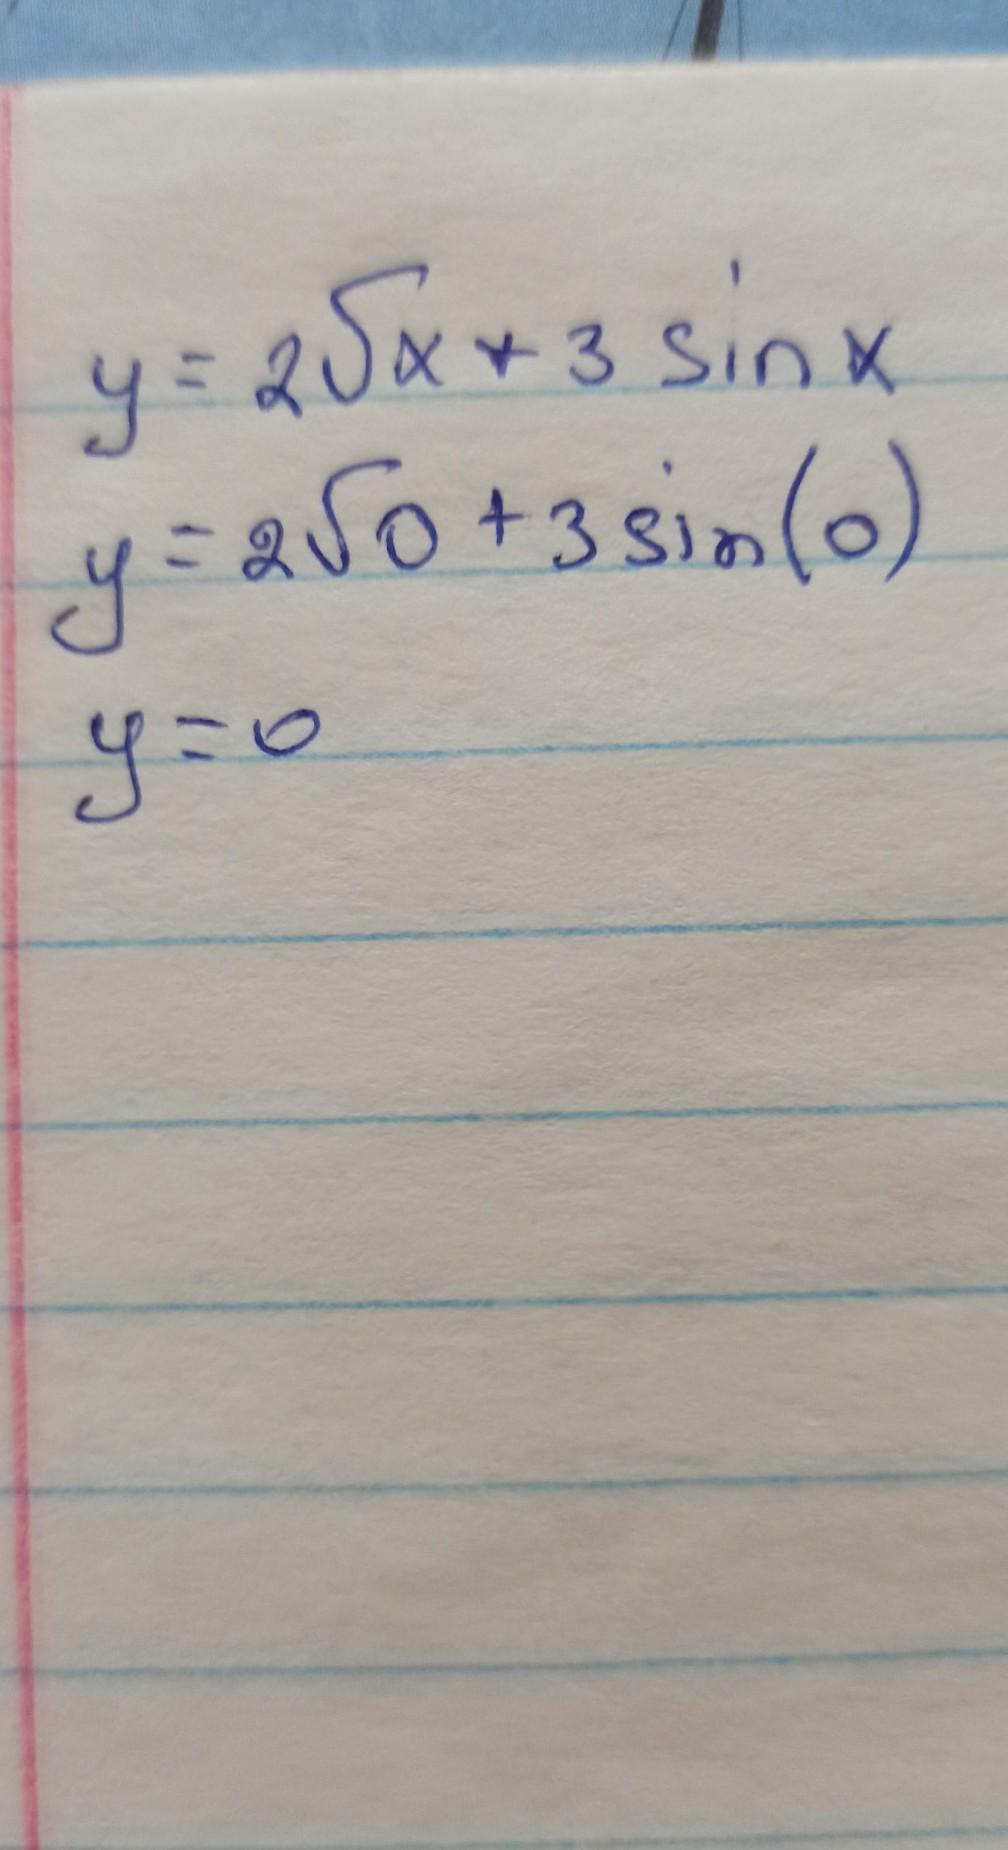 y = 2√x + 3 sin x
y = 2√0 + 3 sin(0)
y = 0